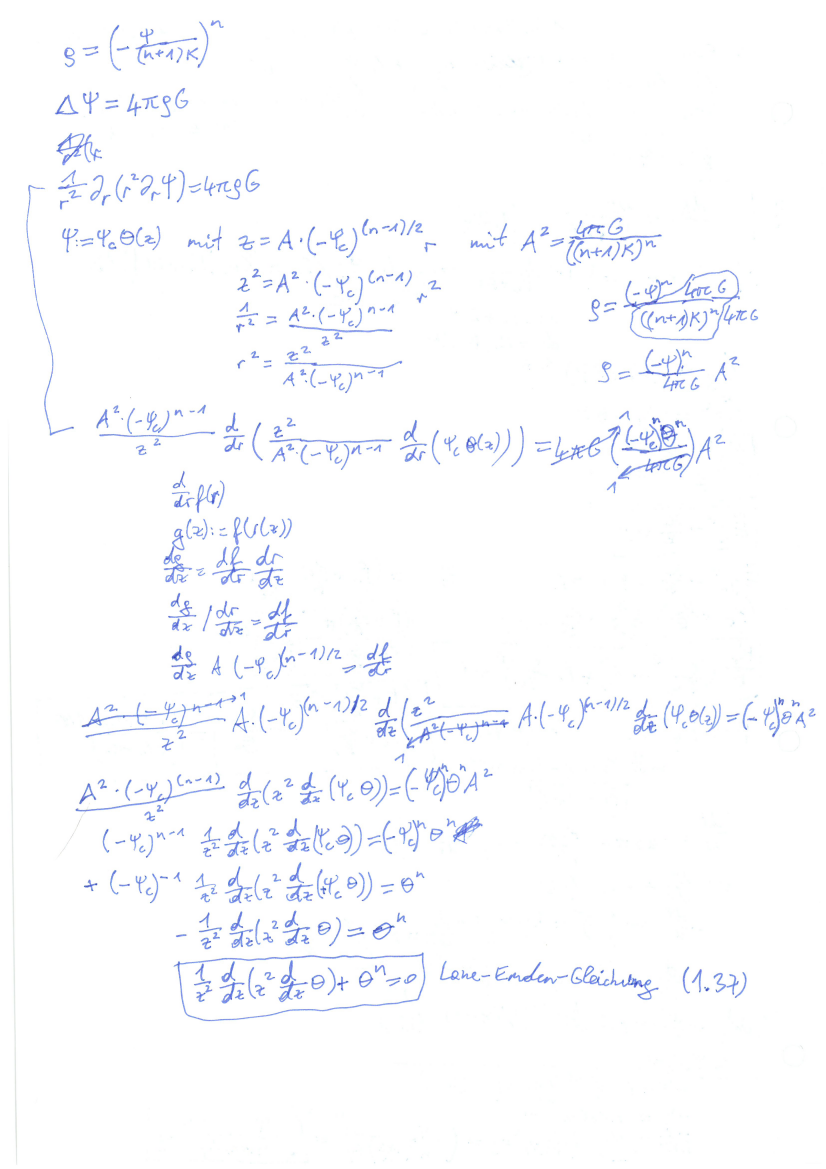 ρ = (-Ψ/((n+1)K))^n
ΔΨ = 4πρG
1/r² ∂_r (r² ∂_r Ψ) = 4πρG
Ψ := Ψ_c Θ(z) mit z = A·(-Ψ_c)^((n-1)/2) r mit A² = 4πG/((n+1)K)^n
z² = A²·(-Ψ_c)^(n-1) r²
1/r² = A²·(-Ψ_c)^(n-1) / z²
r² = z² / (A²·(-Ψ_c)^(n-1))
ρ = (-Ψ)^n 4πG / (((n+1)K)^n 4πG)
ρ = (-Ψ)^n / 4πG A²
A²·(-Ψ_c)^(n-1) / z² d/dr ( z² / (A²·(-Ψ_c)^(n-1)) d/dr (Ψ_c Θ(z)) ) = 4πG ( (-Ψ_c)^n Θ^n / 4πG ) A²
d/dr f(r)
g(z) := f(r(z))
dg/dz = df/dr dr/dz
dg/dz / dr/dz = df/dr
dg/dz A (-Ψ_c)^((n-1)/2) = df/dr
A²·(-Ψ_c)^(n-1) / z² A·(-Ψ_c)^((n-1)/2) d/dz ( z² / (A²(-Ψ_c)^(n-1)) A·(-Ψ_c)^((n-1)/2) d/dz (Ψ_c Θ(z)) = (-Ψ_c)^n Θ^n A²
A²·(-Ψ_c)^(n-1) / z² d/dz (z² d/dz (Ψ_c Θ)) = (-Ψ_c)^n Θ^n A²
(-Ψ_c)^(n-1) 1/z² d/dz (z² d/dz (Ψ_c Θ)) = (-Ψ_c)^n Θ^n
+ (-Ψ_c)^-1 1/z² d/dz (z² d/dz (+Ψ_c Θ)) = Θ^n
- 1/z² d/dz (z² d/dz Θ) = Θ^n
1/z² d/dz (z² d/dz Θ) + Θ^n = 0 Lane-Emden-Gleichung (1.37)